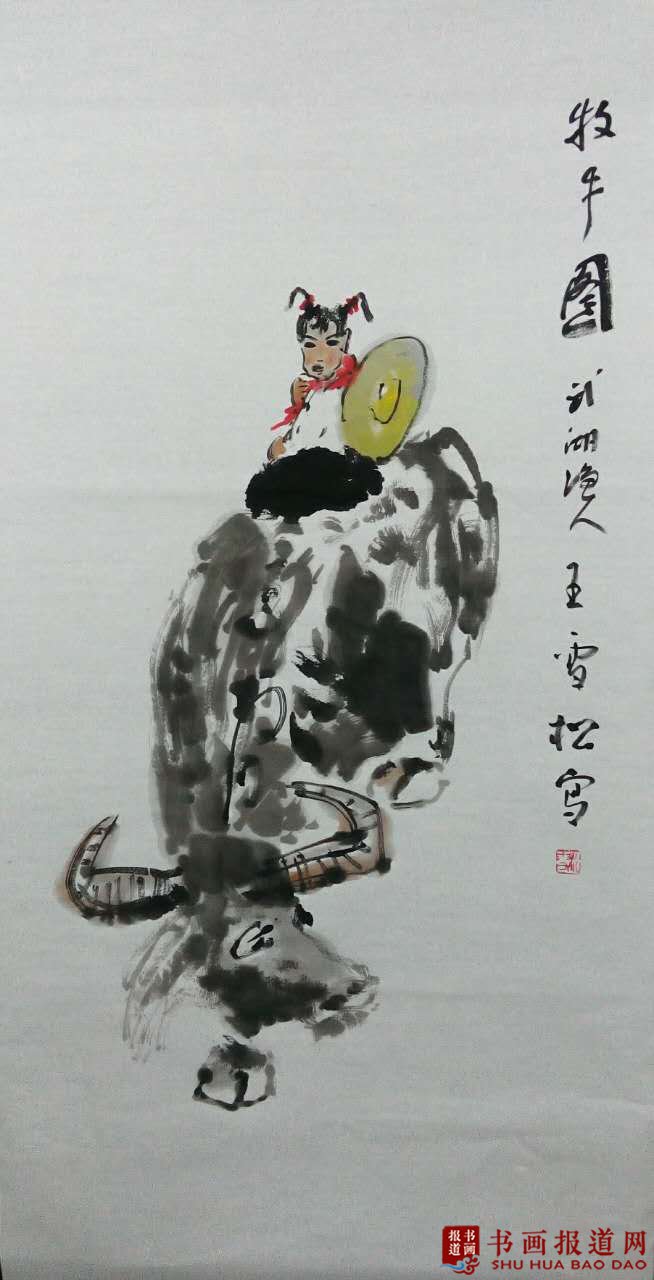 牧牛图 武湖渔人 王雪松写
书画
报道
书画报道网
SHU HUA BAO DAO